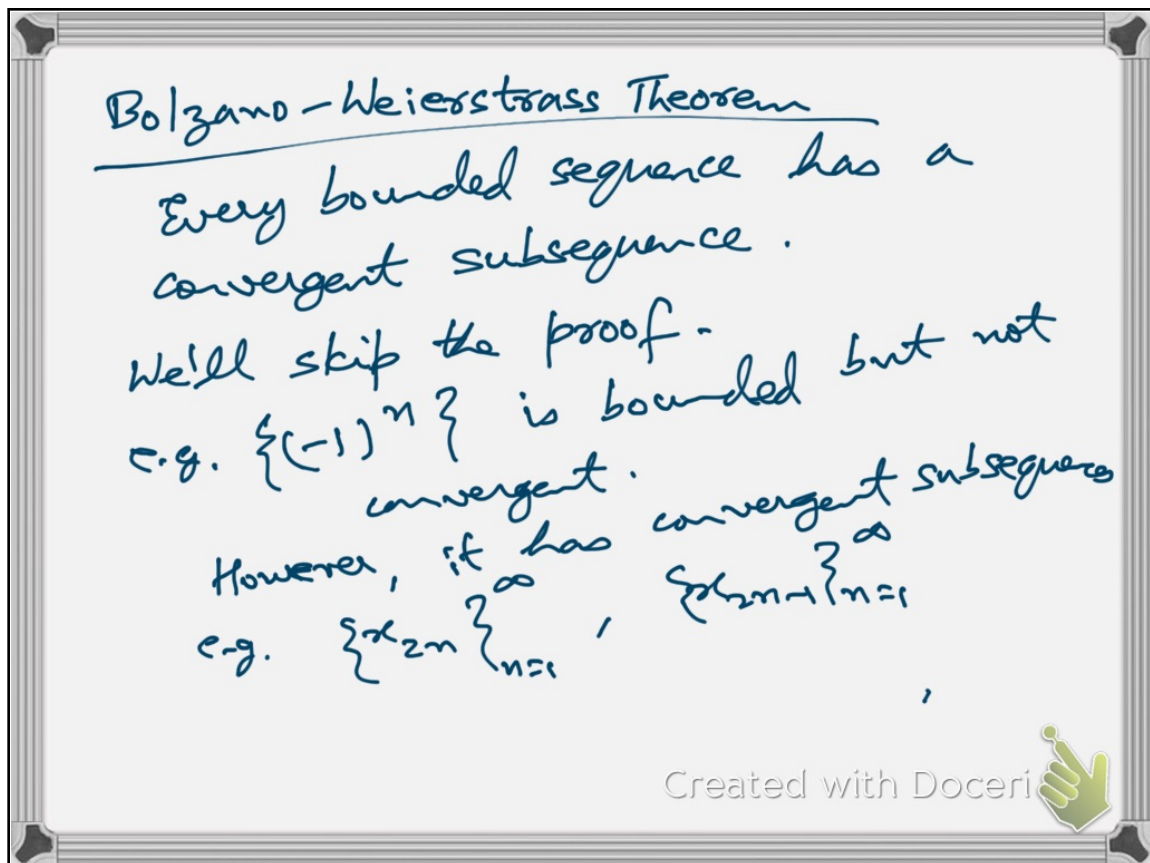 Bolzano-Weierstrass Theorem
Every bounded sequence has a
convergent subsequence.
We'll skip the proof.
e.g. {(-1)^n} is bounded but not
convergent.
However, it has convergent subsequences
e.g. {x_{2n}}_{n=1}^∞ , {x_{2n-1}}_{n=1}^∞
,
Created with Doceri